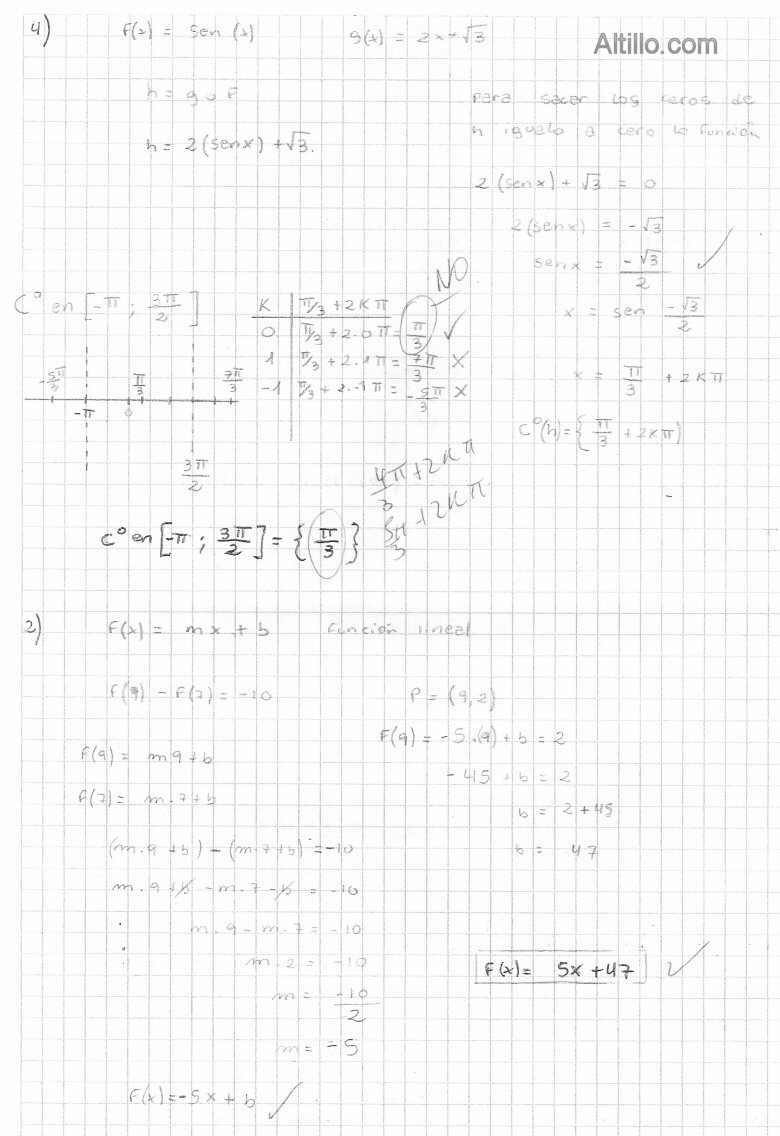 4) F(x) = sen (x) g(x) = 2x+√3
Altillo.com
h = g o F
h = 2(senx) + √3.
para sacar los ceros de
h igualo a cero la función
2(senx) + √3 = 0
2(senx) = -√3
senx = -√3/2 ✓
x = sen -√3/2
x = π/3 + 2Kπ
C°(h) = { π/3 + 2Kπ)
C° en [-π ; 3π/2]
K | π/3 + 2Kπ
0 | π/3 + 2.0π = π/3 ✓
1 | π/3 + 2.1π = 7π/3 X
-1 | π/3 + 2.-1π = -5π/3 X
NO
-5π/3 π/3 7π/3
-π 0
3π/2
4π/3 + 2Kπ
5π/3 + 2Kπ
C° en [-π ; 3π/2] = { π/3 }
2) F(x) = mx + b Función lineal
F(9) - F(7) = -10
F(9) = m9+b
F(7) = m.7+b
(m.9 + b) - (m.7+b) = -10
m.9+b - m.7-b = -10
m.9 - m.7 = -10
m.2 = -10
m = -10/2
m = -5
F(x) = -5x + b ✓
P = (9,2)
F(9) = -5.(9) + b = 2
-45 + b = 2
b = 2 + 45
b = 47
F(x) = 5x + 47 ✓